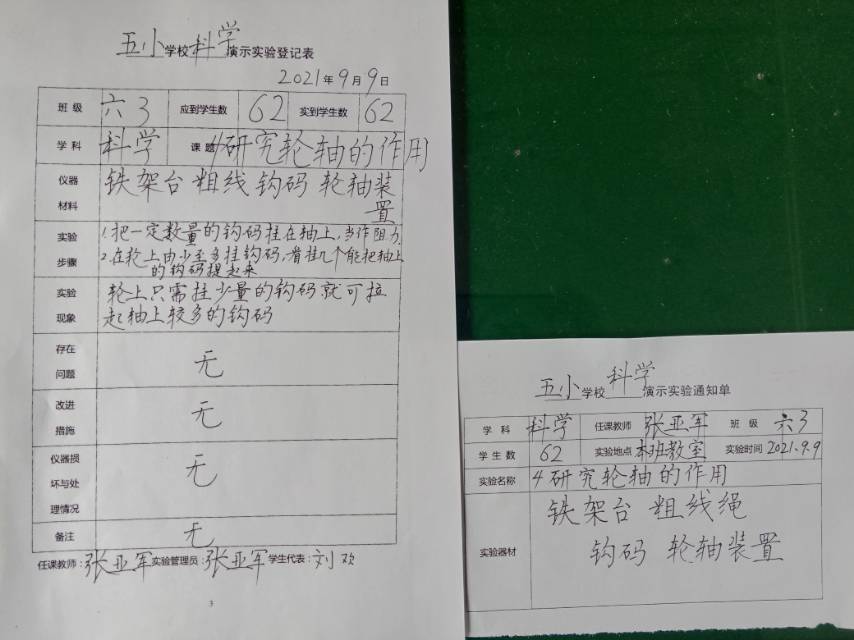 五小学校科学演示实验登记表
2021年9月9日
班级 六3 应到学生数 62 实到学生数 62
学科 科学 课题 4研究轮轴的作用
仪器材料 铁架台 粗线 钩码 轮轴装
置
实验步骤 1.把一定数量的钩码挂在轴上,当作阻力.
2.在轮上由少至多挂钩码,看挂几个能把轴上
的钩码提起来
实验现象 轮上只需挂少量的钩码就可拉
起轴上较多的钩码
存在问题 无
改进措施 无
仪器损坏与处理情况 无
备注 无
任课教师:张亚军 实验管理员:张亚军 学生代表:刘欢
3
五小学校科学演示实验通知单
学科 科学 任课教师 张亚军 班级 六3
学生数 62 实验地点 本班教室 实验时间 2021.9.9
实验名称 4研究轮轴的作用
实验器材 铁架台 粗线绳
钩码 轮轴装置